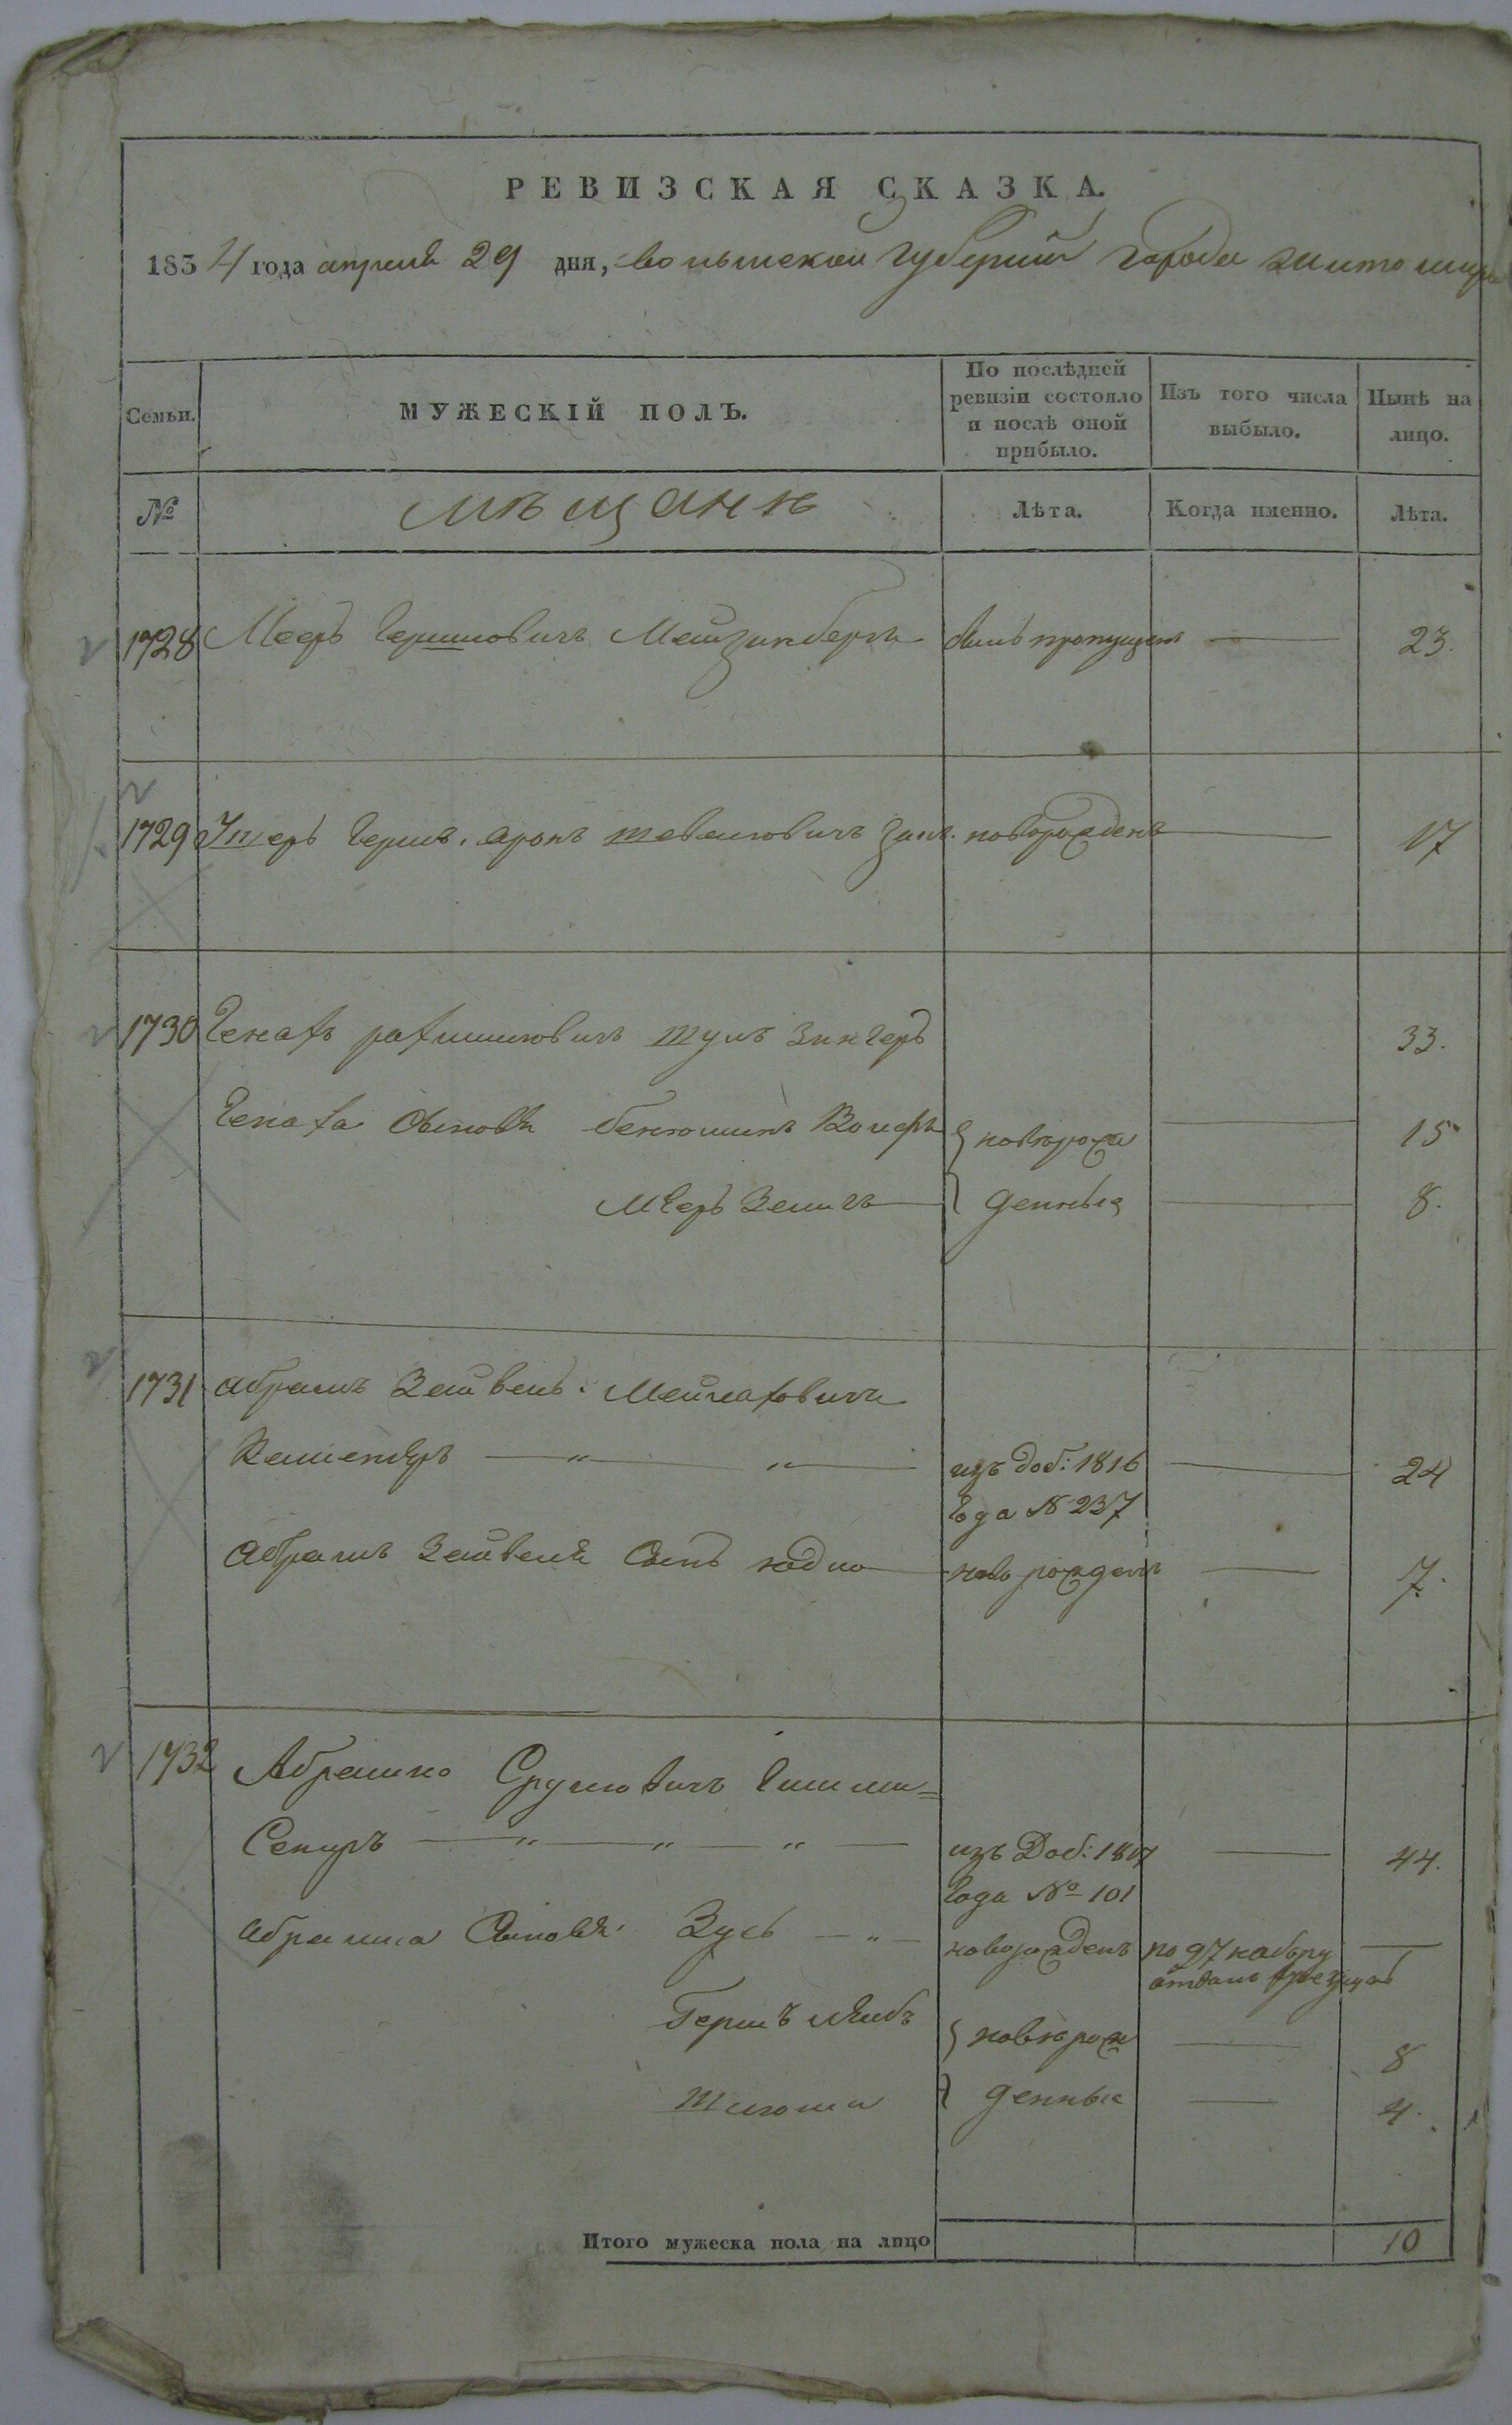 РЕВИЗСКАЯ СКАЗКА.
1834 года апреля 29 дня, волынской губернии города житомира
Семьи. МУЖЕСКІЙ ПОЛЪ. По послѣдней ревизіи состояло и послѣ оной прибыло. Изъ того числа выбыло. Нынѣ на лицо.
№ мѣщанѣ Лѣта. Когда именно. Лѣта.
1728 Меер Гершковичъ былъ пропущенъ 23.
1729 Гершъ. аронъ новорожденъ 17
1730 Шулъ Зингеръ 33.
сыновя бенюминъ Волфъ } новорож 15
Мееръ Зелигъ } денныя 8.
1731 абрамъ Зейвель. Мейлаховичъ
изъ доб: 1816 24
года № 237
абрамъ Зейвеля сынъ юдко новорожденъ 7.
1732 Абрамко Срулевичъ
изъ Доб: 1817 44.
года № 101
абрамка сыновя Зусь новорожденъ по 97 набору
отданъ
Гершъ лейбъ } новорож 8
Шлиома } денныя 4.
Итого мужеска пола на лицо 10